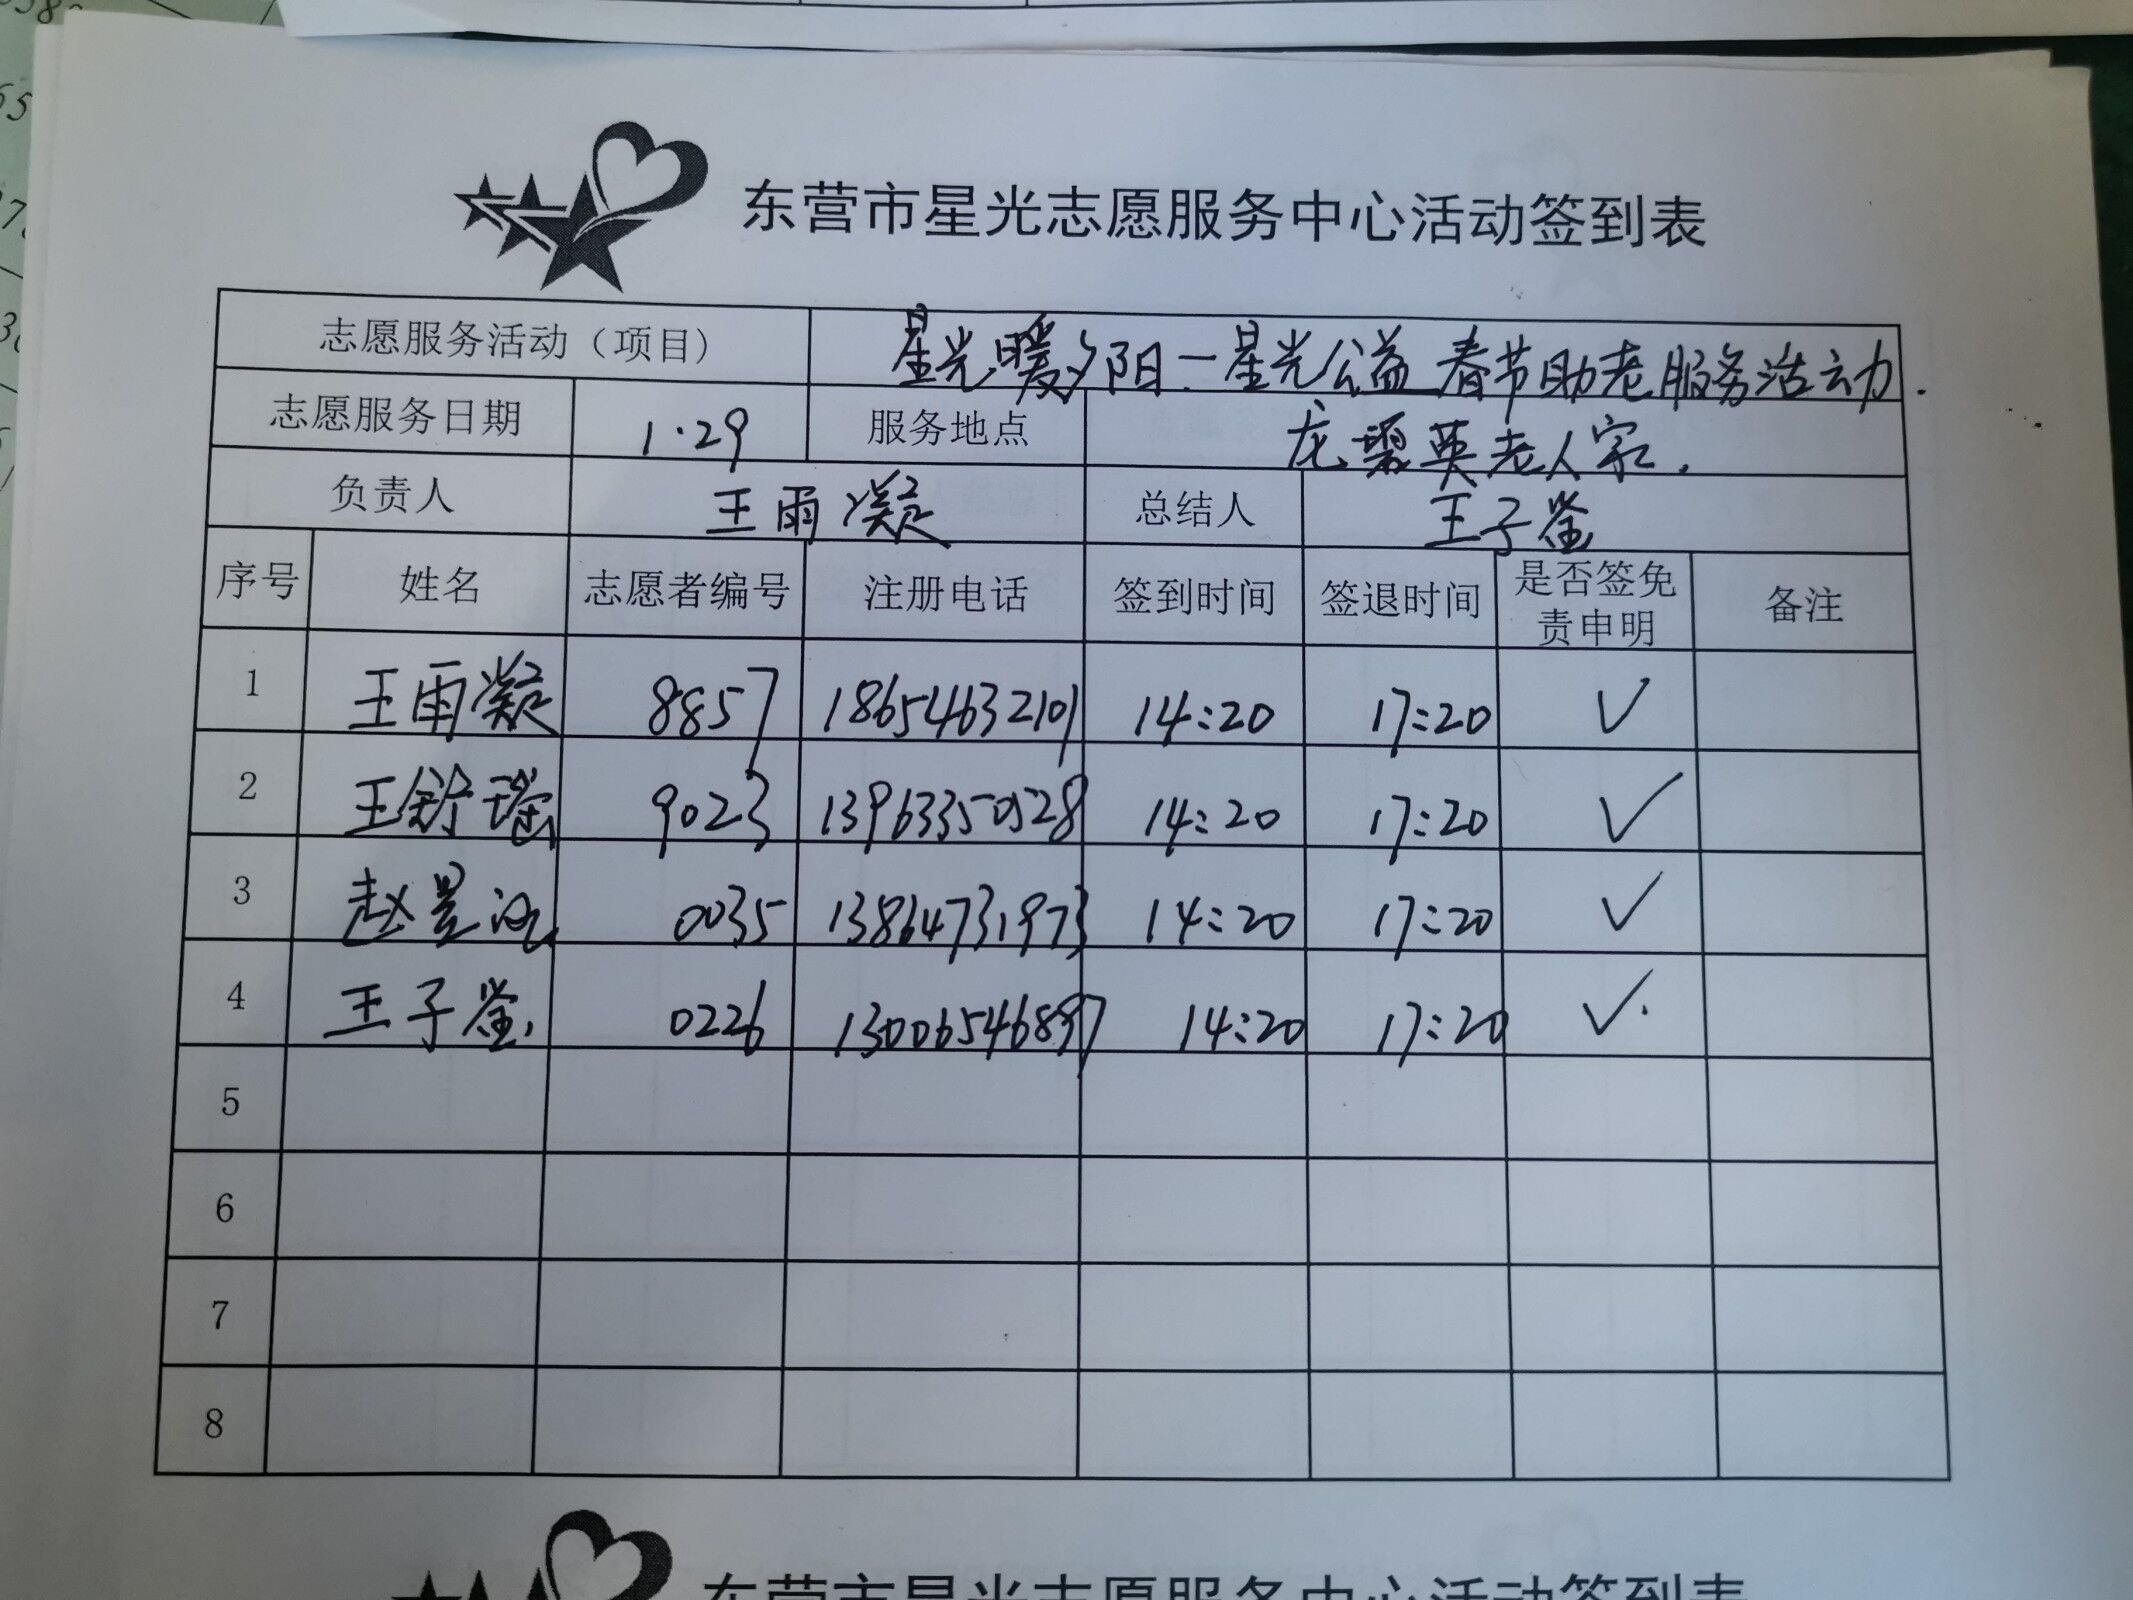 东营市星光志愿服务中心活动签到表
志愿服务活动（项目） 星光暖夕阳—星光公益 春节助老服务活动.
志愿服务日期 1.29 服务地点 龙翠英老人家.
负责人 王雨凝 总结人 王子鉴
序号 姓名 志愿者编号 注册电话 签到时间 签退时间 是否签免责申明 备注
1 王雨凝 8857 18654632101 14:20 17:20 ✓
2 王舒瑶 9023 13963350528 14:20 17:20 ✓
3 赵景 0035 13864731973 14:20 17:20 ✓
4 王子鉴 0226 14:20 17:20 ✓
5
6
7
8
东营市星光志愿服务中心活动签到表